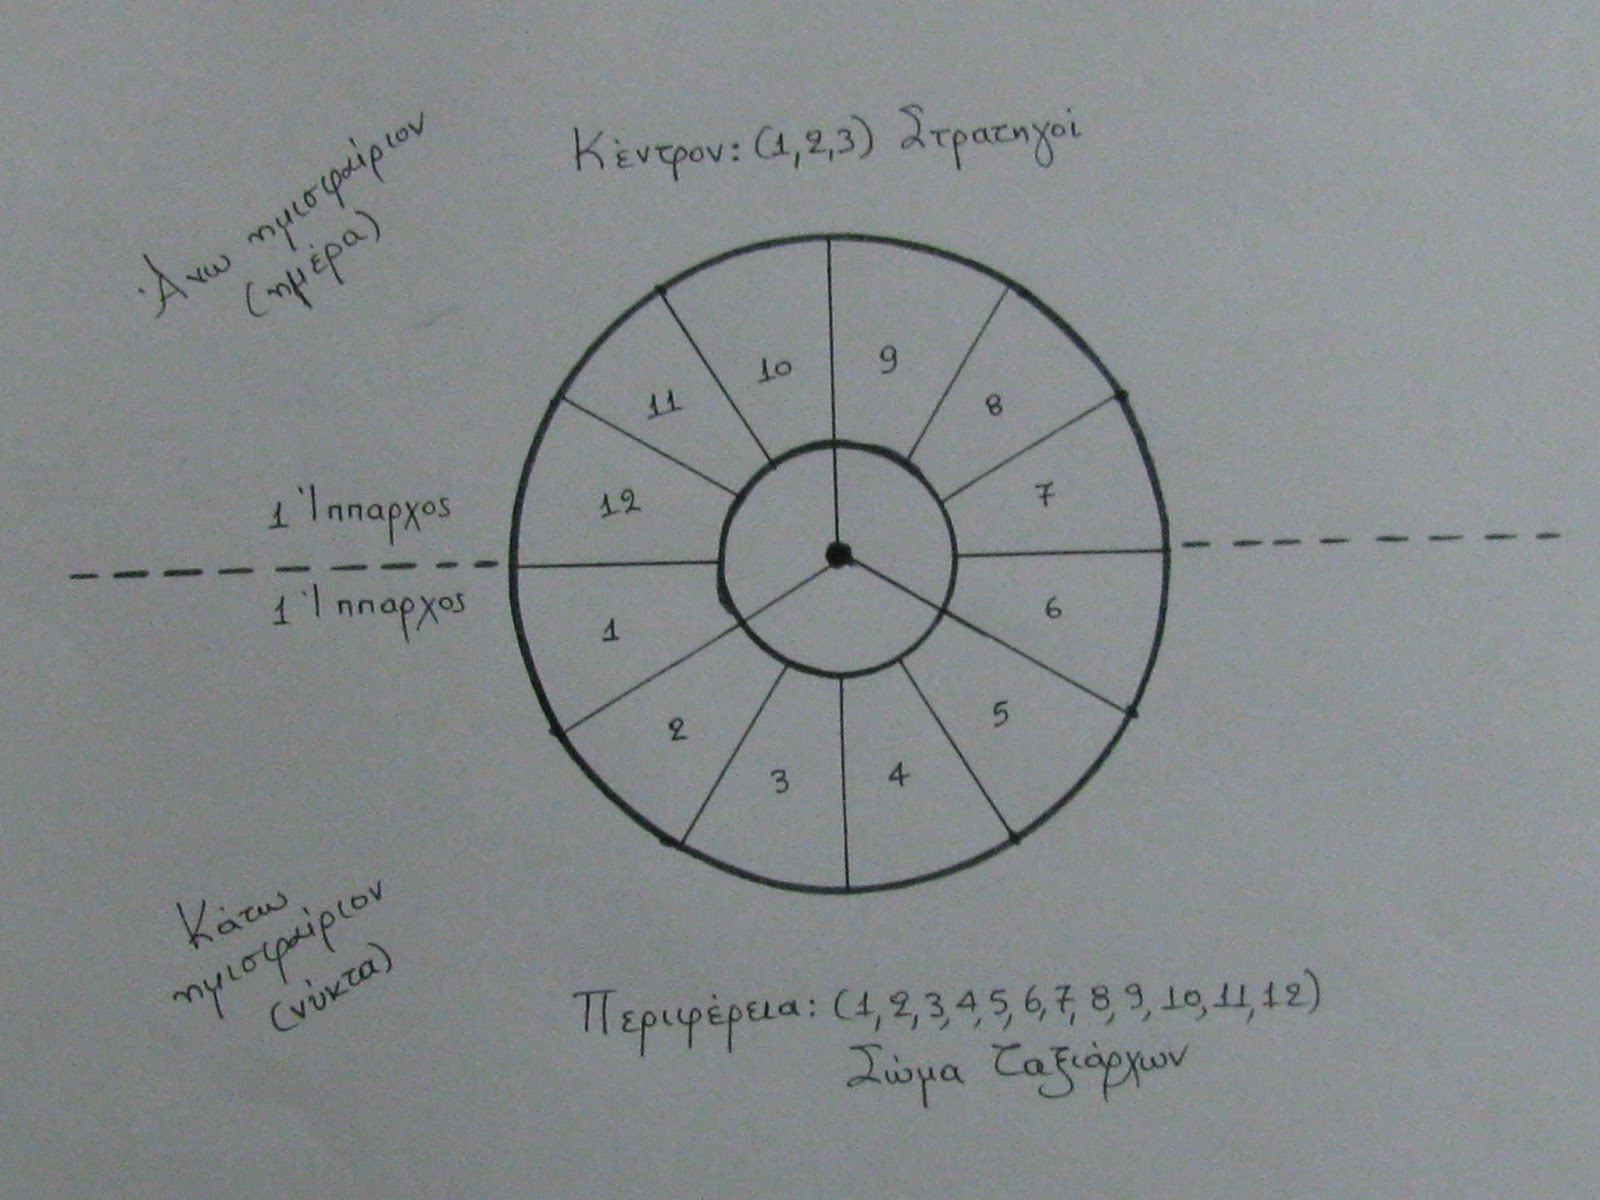 Κέντρον: (1,2,3) Στρατηγοί
Άνω ημισφαίριον
(ημέρα)
10
9
11
8
12
7
1 Ίππαρχος
1 Ίππαρχος
1
6
2
5
3
4
Κάτω
ημισφαίριον
(νύκτα)
Περιφέρεια: (1,2,3,4,5,6,7,8,9,10,11,12)
Σώμα Ταξιάρχων